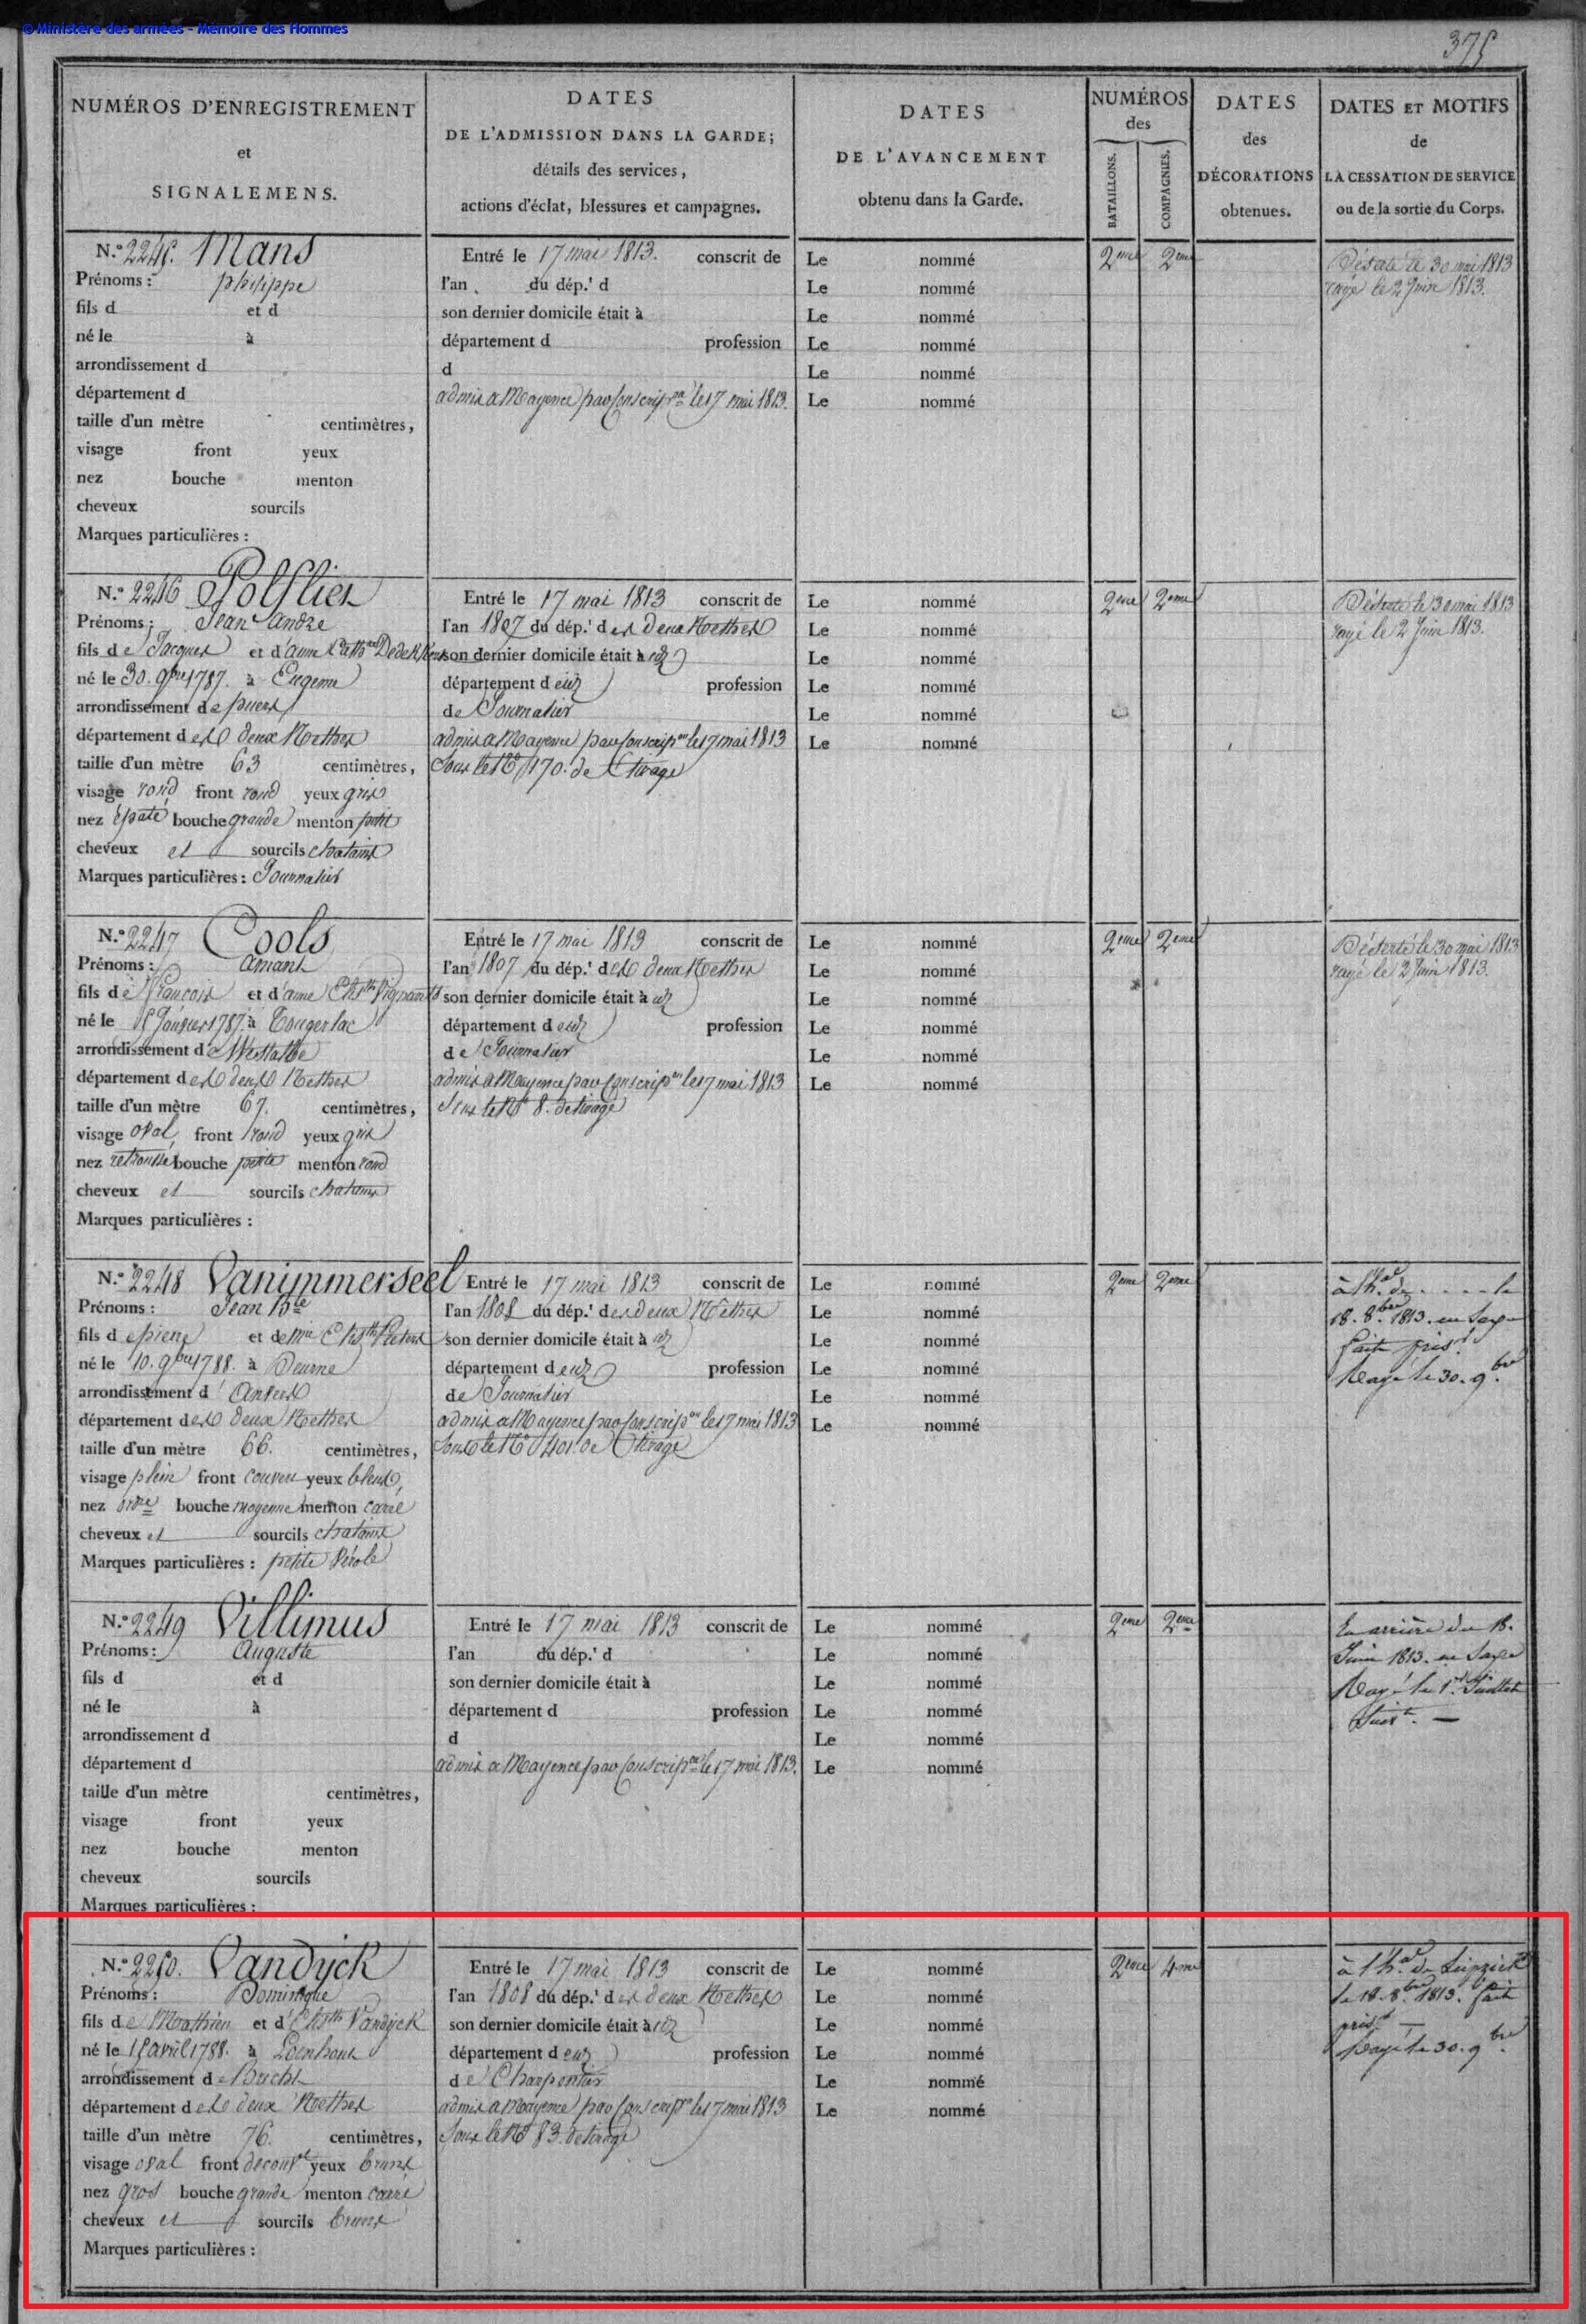 © Ministère des armées - Mémoire des Hommes
375
NUMÉROS D'ENREGISTREMENT
et
SIGNALEMENS.
DATES
DE L'ADMISSION DANS LA GARDE;
détails des services,
actions d'éclat, blessures et campagnes.
DATES
DE L'AVANCEMENT
obtenu dans la Garde.
NUMÉROS
des
BATAILLONS.
COMPAGNIES.
DATES
des
DÉCORATIONS
obtenues.
DATES ET MOTIFS
de
LA CESSATION DE SERVICE
ou de la sortie du Corps.
N.º 2245. Mans
Prénoms : philippe
fils d et d
né le à
arrondissement d
département d
taille d'un mètre centimètres,
visage front yeux
nez bouche menton
cheveux sourcils
Marques particulières :
Entré le 17 mai 1813. conscrit de
l'an du dép.t d
son dernier domicile était à
département d profession
d
admis a Mayence par Conscripon le 17 mai 1813.
Le nommé
Le nommé
Le nommé
Le nommé
Le nommé
Le nommé
2eme 2eme
Déserté le 30 mai 1813
rayé le 2 Juin 1813.
N.º 2246 Polflier
Prénoms : Jean André
fils de Jacques et d'anne Cathne
né le 30. 9bre 1787. à
arrondissement de puers
département des deux Nethes
taille d'un mètre 63 centimètres,
visage rond front rond yeux gris
nez épaté bouche grande menton petit
cheveux et sourcils chatains
Marques particulières : Journalier
Entré le 17 mai 1813 conscrit de
l'an 1807 du dép.t des deux Nethes
son dernier domicile était à idem
département d idem profession
de Journalier
admis a Mayence par Conscripon le 17 mai 1813
Sous le No 170. de tirage
Le nommé
Le nommé
Le nommé
Le nommé
Le nommé
Le nommé
2eme 2eme
Déserté le 30 mai 1813
rayé le 2 Juin 1813.
N.º 2247 Cools
Prénoms : Amant
fils de François et d'anne Elisth
né le 15 Janvier 1787. à Tongerloo
arrondissement de
département des deux Nethes
taille d'un mètre 67. centimètres,
visage oval front rond yeux gris
nez retroussé bouche petite menton rond
cheveux et sourcils chatains
Marques particulières :
Entré le 17 mai 1813 conscrit de
l'an 1807 du dép.t des deux Nethes
son dernier domicile était à idem
département d idem profession
de Journalier
admis a Mayence par Conscripon le 17 mai 1813
Sous le No 8. de tirage
Le nommé
Le nommé
Le nommé
Le nommé
Le nommé
Le nommé
2eme 2eme
Déserté le 30 mai 1813
rayé le 2 Juin 1813.
N.º 2248 Vanimmerseel
Prénoms : Jean Bte
fils de pierre et de Mie Elisth Peeters
né le 10. 9bre 1788. à Deurne
arrondissement d' Anvers
département des deux Nethes
taille d'un mètre 66. centimètres,
visage plein front couvert yeux bleus,
nez ordre bouche moyenne menton carré
cheveux et sourcils chatains
Marques particulières : petite Vérole
Entré le 17 mai 1813 conscrit de
l'an 1808 du dép.t des deux Nethes
son dernier domicile était à idem
département d idem profession
de Journalier
admis a Mayence par Conscripon le 17 mai 1813
Sous le No 401. de tirage
Le nommé
Le nommé
Le nommé
Le nommé
Le nommé
Le nommé
2eme 2eme
à l'hal de . . . . le
18. 8bre 1813. en Saxe
fait prisr
Rayé le 30. 9bre
N.º 2249 Villimus
Prénoms : Auguste
fils d et d
né le à
arrondissement d
département d
taille d'un mètre centimètres,
visage front yeux
nez bouche menton
cheveux sourcils
Marques particulières :
Entré le 17 mai 1813 conscrit de
l'an du dép.t d
son dernier domicile était à
département d profession
d
admis a Mayence par Conscripon le 17 mai 1813.
Le nommé
Le nommé
Le nommé
Le nommé
Le nommé
Le nommé
2eme 2eme
En arrière du 18.
Juin 1813. en Saxe
Rayé le 1er Juillet
Suivt. —
N.º 2250. Vandyck
Prénoms : Dominique
fils de Mathieu et d' Elisth Vandyck
né le 15 avril 1788. à Loenhout
arrondissement de Brecht
département des deux Nethes
taille d'un mètre 76. centimètres,
visage oval front découvt yeux bruns
nez gros bouche grande menton carré
cheveux et sourcils bruns
Marques particulières :
Entré le 17 mai 1813 conscrit de
l'an 1808 du dép.t des deux Nethes
son dernier domicile était à idem
département d idem profession
de Charpentier
admis a Mayence par Conscripon le 17 mai 1813
Sous le No 83. de tirage
Le nommé
Le nommé
Le nommé
Le nommé
Le nommé
Le nommé
2eme 4eme
à l'hal de Leipzick
le 18. 8bre 1813. fait
prisr —
Rayé le 30. 9bre